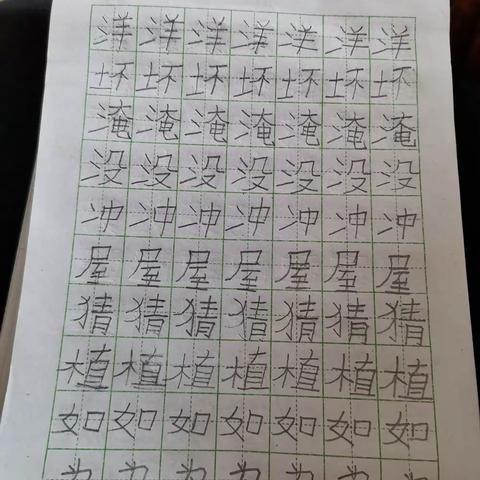 洋洋洋洋洋洋洋
坏坏坏坏坏坏坏
淹淹淹淹淹淹淹
没没没没没没没
冲冲冲冲冲冲冲
屋屋屋屋屋屋屋
猜猜猜猜猜猜猜
植植植植植植植
如如如如如如如